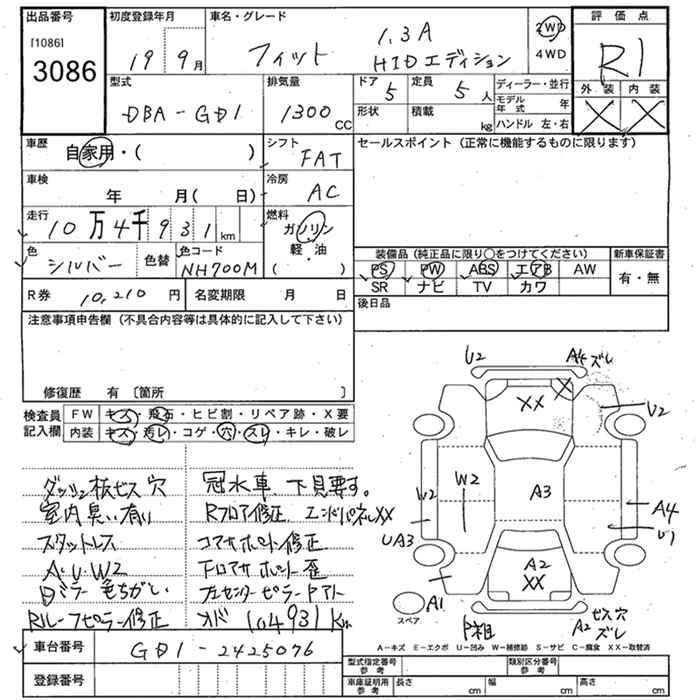 出品番号
[1086]
3086
初度登録年月
19年9月
車名・グレード
フィット 1.3A
HIDエディション
2WD
4WD
評価点
R1
外装 内装
X X
型式
DBA-GD1
排気量
1300 cc
ドア
5
定員
5人
形状
積載
kg
ディーラー・並行
モデル年式 年
ハンドル 左・右
車歴
自家用・( )
シフト
FAT
セールスポイント (正常に機能するものに限ります)
車検
年 月( 日)
冷房
AC
走行
10万4千931km
燃料
ガソリン
軽・油
( )
色
シルバー
色替
色コード
NH700M
装備品 (純正品に限り○をつけてください)
PS PW ABS エアB AW
SR ナビ TV カワ
新車保証書
有・無
R券 10,210円
名変期限 月 日
後日品
注意事項申告欄 (不具合内容等は具体的に記入して下さい)
修復歴 有 〔箇所 〕
検査員記入欄
FW キズ・飛石・ヒビ割・リペア跡・X要
内装 キズ・汚レ・コゲ・穴・スレ・キレ・破レ
ダッシュ板ビス穴
室内臭い有り
スタットレス
A・U・W2
冠水車 下見要す。
Rフロア修正 エンドパネルXX
コアサポート修正
Rルーフピラー修正
メーター 104931Km
U2
A4ズレ
XX
X
U2
W2
W2
A3
A4
U1
UA3
A2
XX
A1
スペア
P粗
A2
ビス穴
ズレ
A-キズ E-エクボ U-凹み W-補修跡 S-サビ C-腐食 XX-取替済
車台番号
GD1-2425076
登録番号
型式指定番号
参考
類別区分番号
参考
車庫証明用
参考
長さ cm
幅 cm
高さ cm